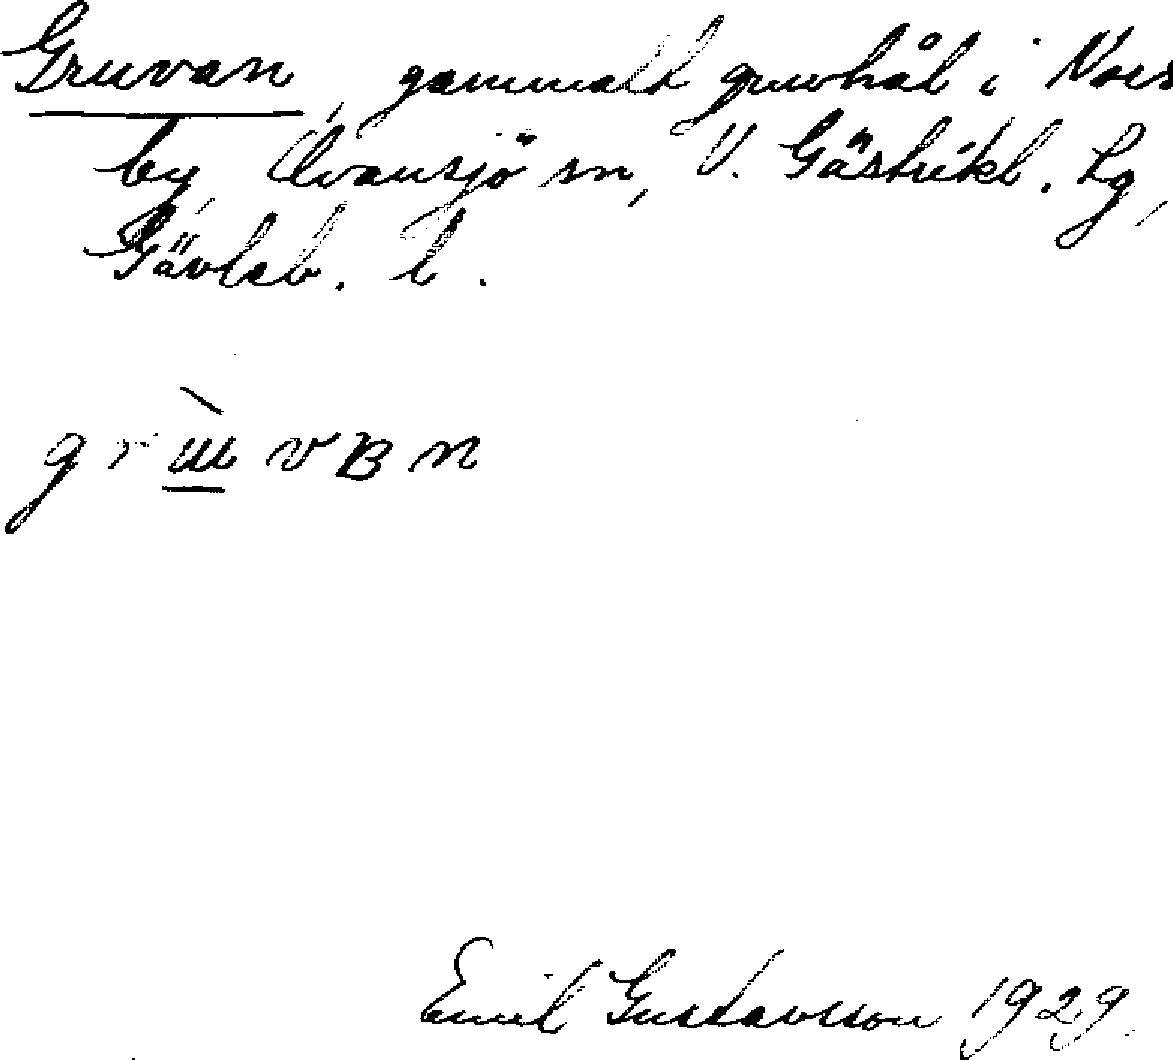 Gruvan, gammalt gruvhål i Nors
by, Ovansjö sn, V. Gästrikl. Lg,
Gävleb. l.
gr
v B n
Emil Gustavsson 1929.